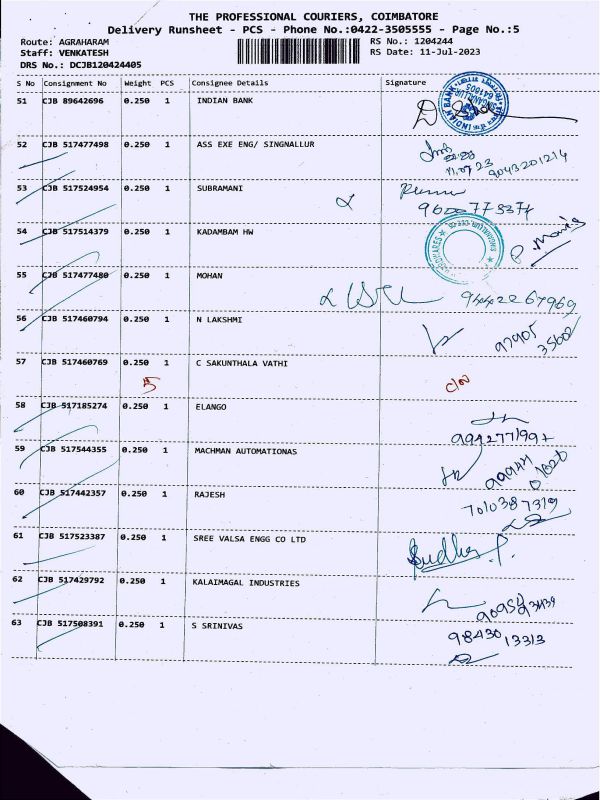 THE PROFESSIONAL COURIERS, COIMBATORE
Delivery Runsheet - PCS - Phone No.:0422-3505555 - Page No.:5
Route: AGRAHARAM RS No.: 1204244
Staff: VENKATESH RS Date: 11-Jul-2023
DRS No.: DCJB120424405
S No Consignment No Weight PCS Consignee Details Signature
51 CJB 89642696 0.250 1 INDIAN BANK
INDIAN BANK
641005
52 CJB 517477498 0.250 1 ASS EXE ENG/ SINGNALLUR
11.07.23 9043201214
53 CJB 517524954 0.250 1 SUBRAMANI
9600773374
54 CJB 517514379 0.250 1 KADAMBAM HW
55 CJB 517477480 0.250 1 MOHAN
9442267969
56 CJB 517460794 0.250 1 N LAKSHMI
97905
35602
57 CJB 517460769 0.250 1 C SAKUNTHALA VATHI
58 CJB 517185274 0.250 1 ELANGO
59 CJB 517544355 0.250 1 MACHMAN AUTOMATIONAS
60 CJB 517442357 0.250 1 RAJESH
7010387319
61 CJB 517523387 0.250 1 SREE VALSA ENGG CO LTD
62 CJB 517429792 0.250 1 KALAIMAGAL INDUSTRIES
63 CJB 517508391 0.250 1 S SRINIVAS
9843013313